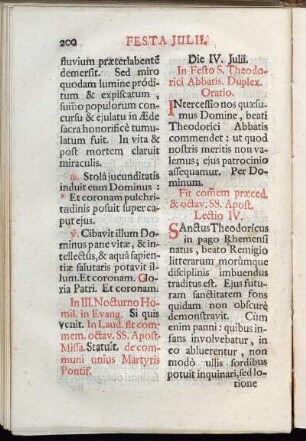 200 FESTA JULII.
fluvium præterlabentē
demersit. Sed miro
quodam lumine próditum
& expiscatum,
sum̄o populorum concursu
& ejulatu in Æde
sacra honorificè tumulatum
fuit. In vita &
post mortem claruit
miraculis.
℟. Stolâ jucunditatis
induit eum Dominus :
* Et coronam pulchritudinis
posuit super caput
ejus.
℣. Cibavit illum Dominus
pane vitæ, & intellectûs,
& aquâ sapientiæ
salutaris potavit illum.
Et coronam. Gloria
Patri. Et coronam.
In III. Nocturno Homil.
in Evang. Si quis
venit. In Laud. fit commem.
octav. SS. Apost.
Missa. Statuit. de communi
unius Martyris
Pontif.
Die IV. Julii.
In Festo S. Theodorici
Abbatis. Duplex.
Oratio.
INtercessio nos quæsumus
Domine, beati
Theodorici Abbatis
commendet : ut quod
nostris meritis non valemus;
ejus patrocinio
assequamur. Per Dominum.
Fit comem præced.
& octav. SS. Apost.
Lectio IV.
SAnctus Theodoricus
in pago Rhemensi
natus, beato Remigio
litterarum morúmque
disciplinis imbuendus
traditus est. Ejus futuram
sanctitatem fons
quidam non obscurè
demonstravit. Cùm
enim panni : quibus infans
involvebatur, in
eo abluerentur, non
modò ullis sordibus
potuit inquinari, sed lotione